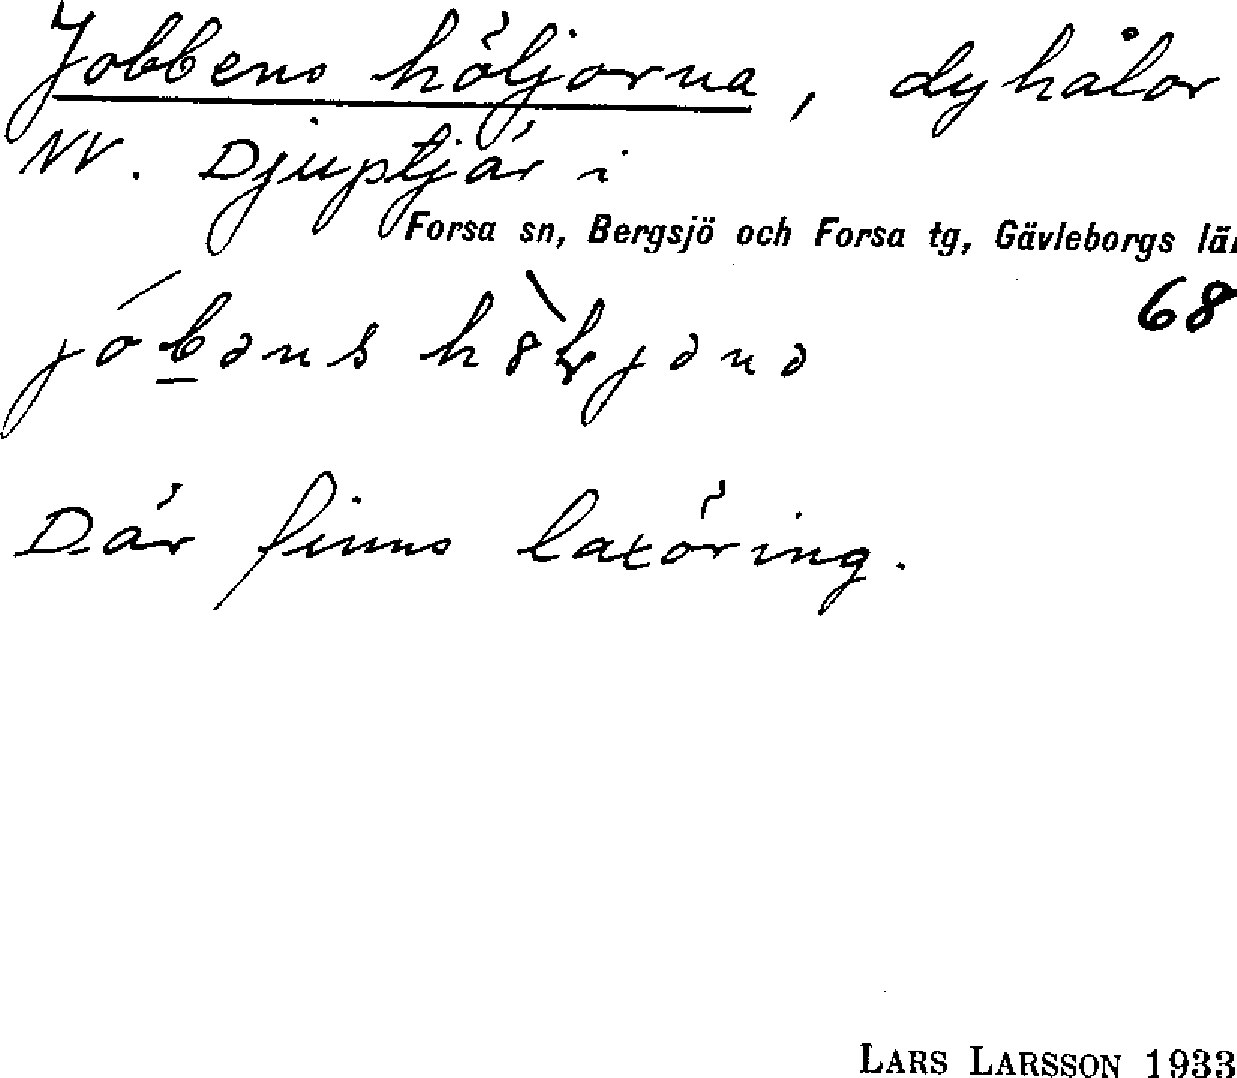 Jobbens höljorna, dyhålor
NV. Djuptjär i
Forsa sn, Bergsjö och Forsa tg, Gävleborgs lä
68
Där finns laxöring.
LARS LARSSON 1933